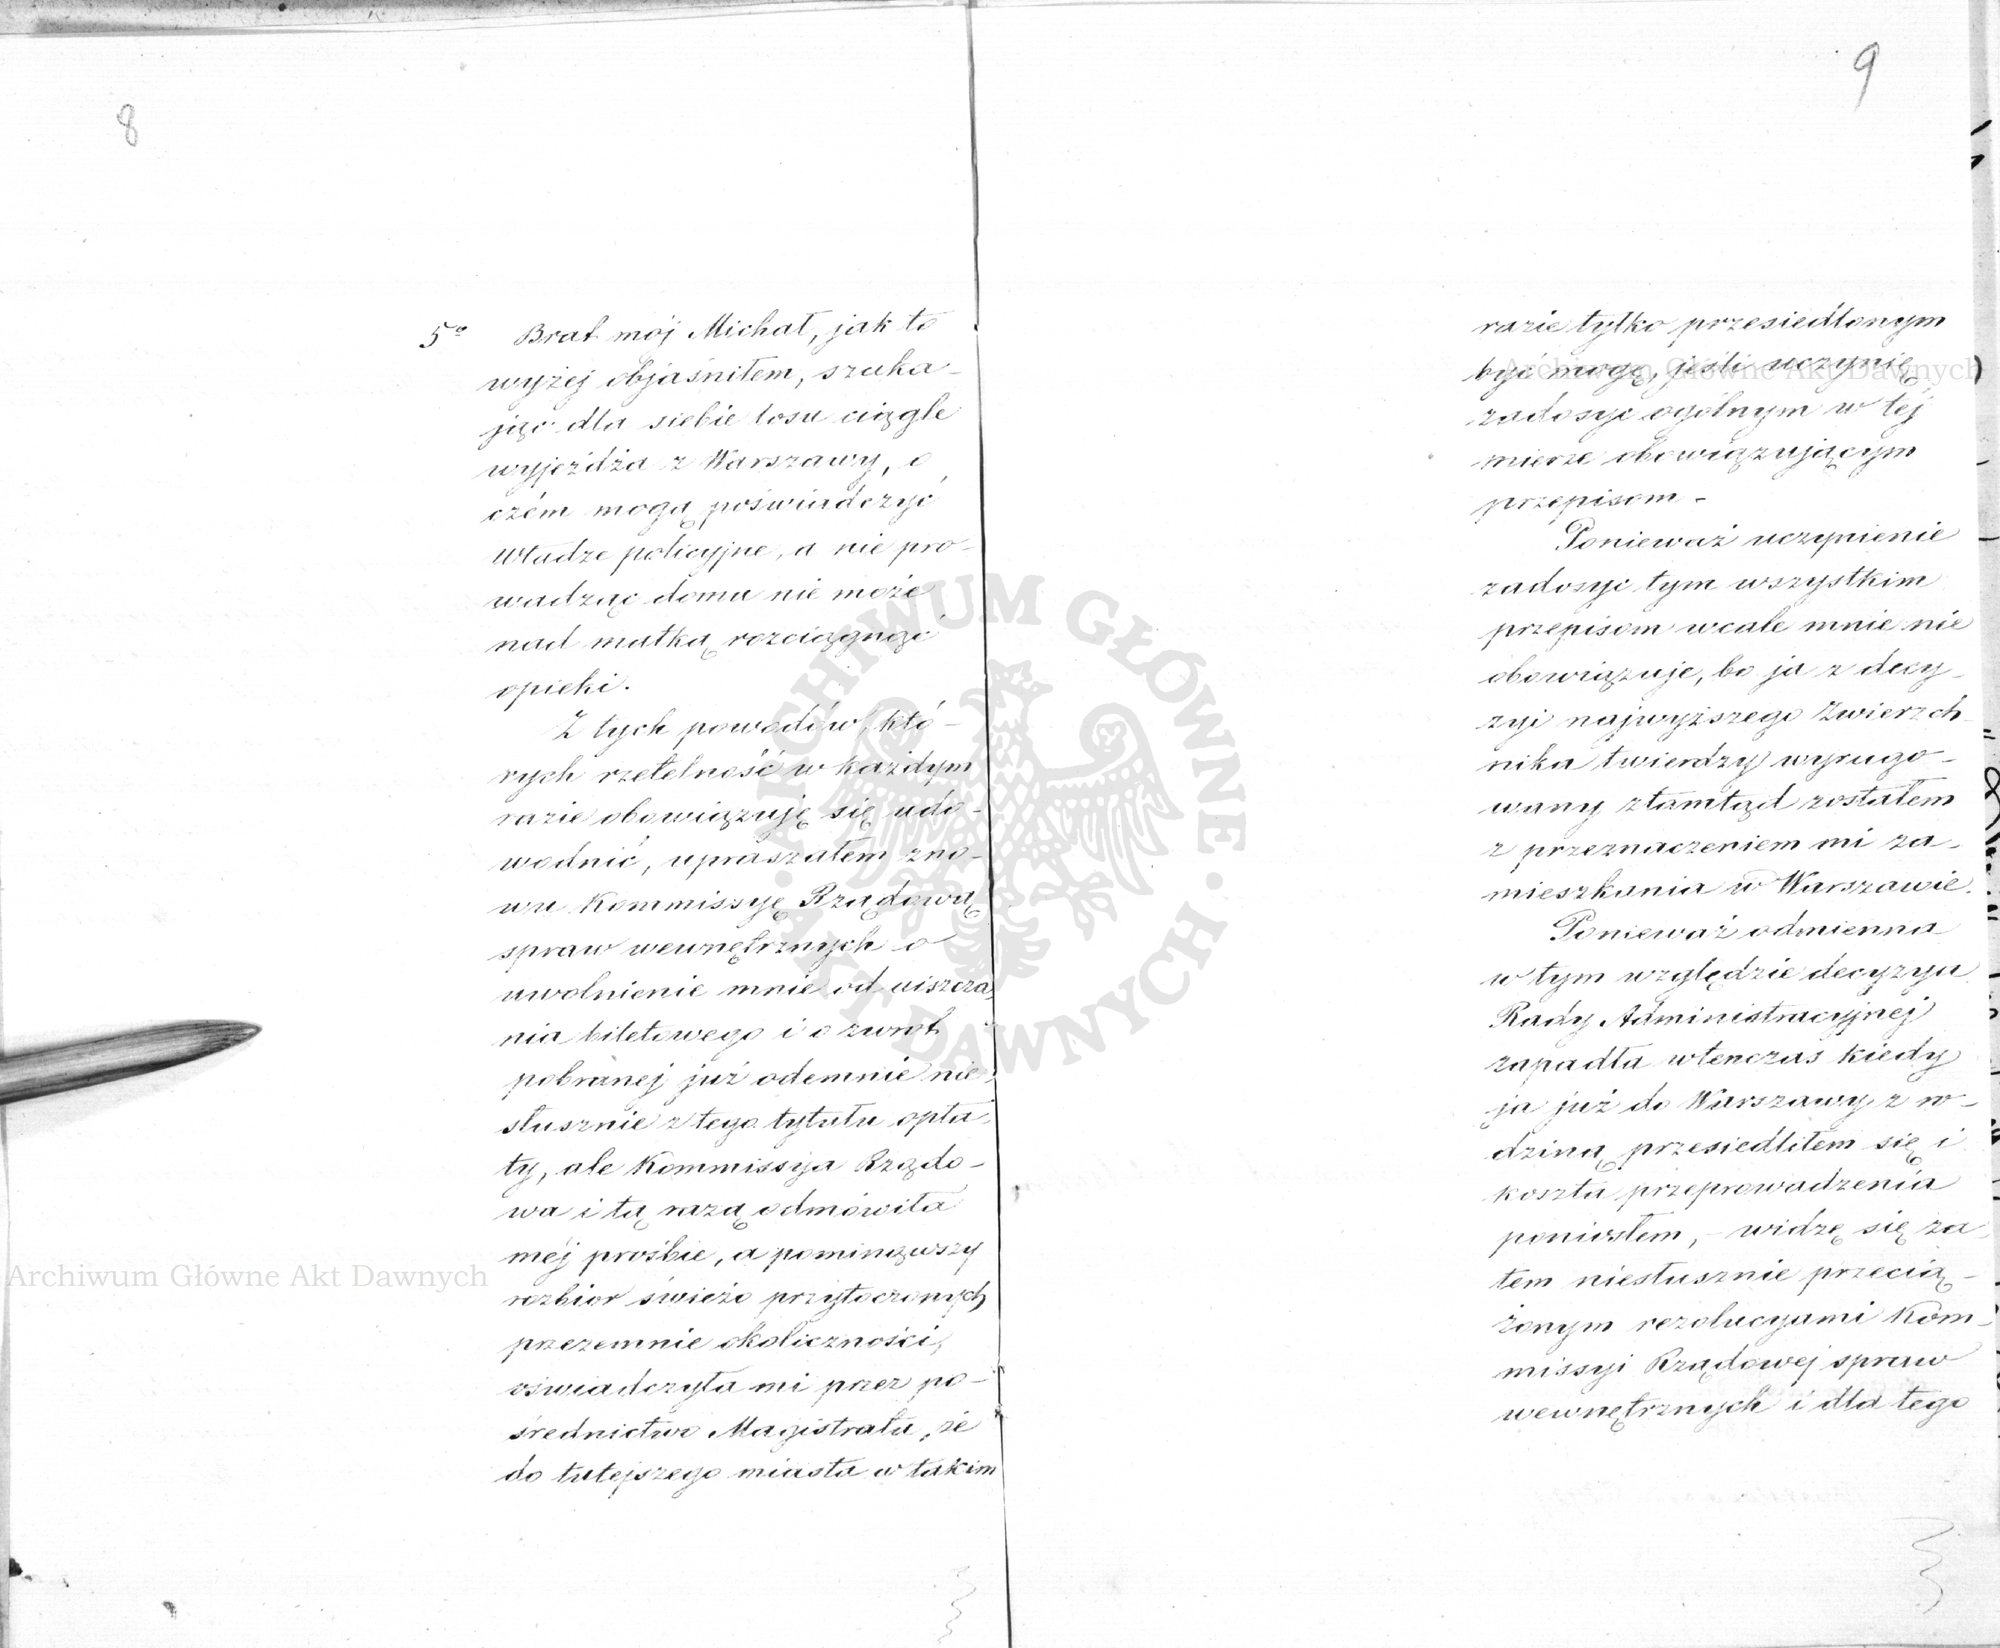 8
5° Brat mój Michał, jak to
wyżej objaśniłem, szuka-
jąc dla siebie losu ciągle
wyjeżdża z Warszawy, o
czém mogą poświadczyć
Władze policyjne, a nie pro-
wadząc domu nie może
nad matką rozciągnąć
opieki.
Z tych powodów, któ-
rych rzetelność w każdym
razie obowiązuję się udo-
wodnić, upraszałem zno-
wu Kommissyę Rządową
spraw wewnętrznych o
uwolnienie mnie od uiszcza-
nia biletowego i o zwrot
pobranej już odemnie nie-
słusznie z tego tytułu opła-
ty, ale Kommissya Rządo-
wa i tą razą odmówiła
méj prośbie, a pominąwszy
rozbiór świeżo przytoczonych
przezemnie okoliczności,
oświadczyła mi przez po-
średnictwo Magistratu, że
do tutejszego miasta w takim
9
razie tylko przesiedlonym
być mogę, jeśli uczynię
zadosyc ogólnym w téj
mierze obowiązującym
przepisom -
Ponieważ uczynienie
zadosyc tym wszystkim
przepisom wcale mnie nie
obowiązuje, bo ja z decy-
zyi najwyższego Zwierzch-
nika twierdzy wyrugo-
wany ztamtąd zostałem
z przeznaczeniem mi za-
mieszkania w Warszawie.
Ponieważ odmienna
w tym względzie decyzya
Rady Administracyjnej
zapadła wtenczas kiedy
ja już do Warszawy z ro-
dziną przesiedliłem się i
koszta przeprowadzenia
poniosłem, - widzę się za-
tem niesłusznie przecią-
żonym rezolucyami Kom-
missyi Rządowej spraw
wewnętrznych i dla tego
Archiwum Główne Akt Dawnych
Archiwum Główne Akt Dawnych
ARCHIWUM GŁÓWNE
AKT DAWNYCH